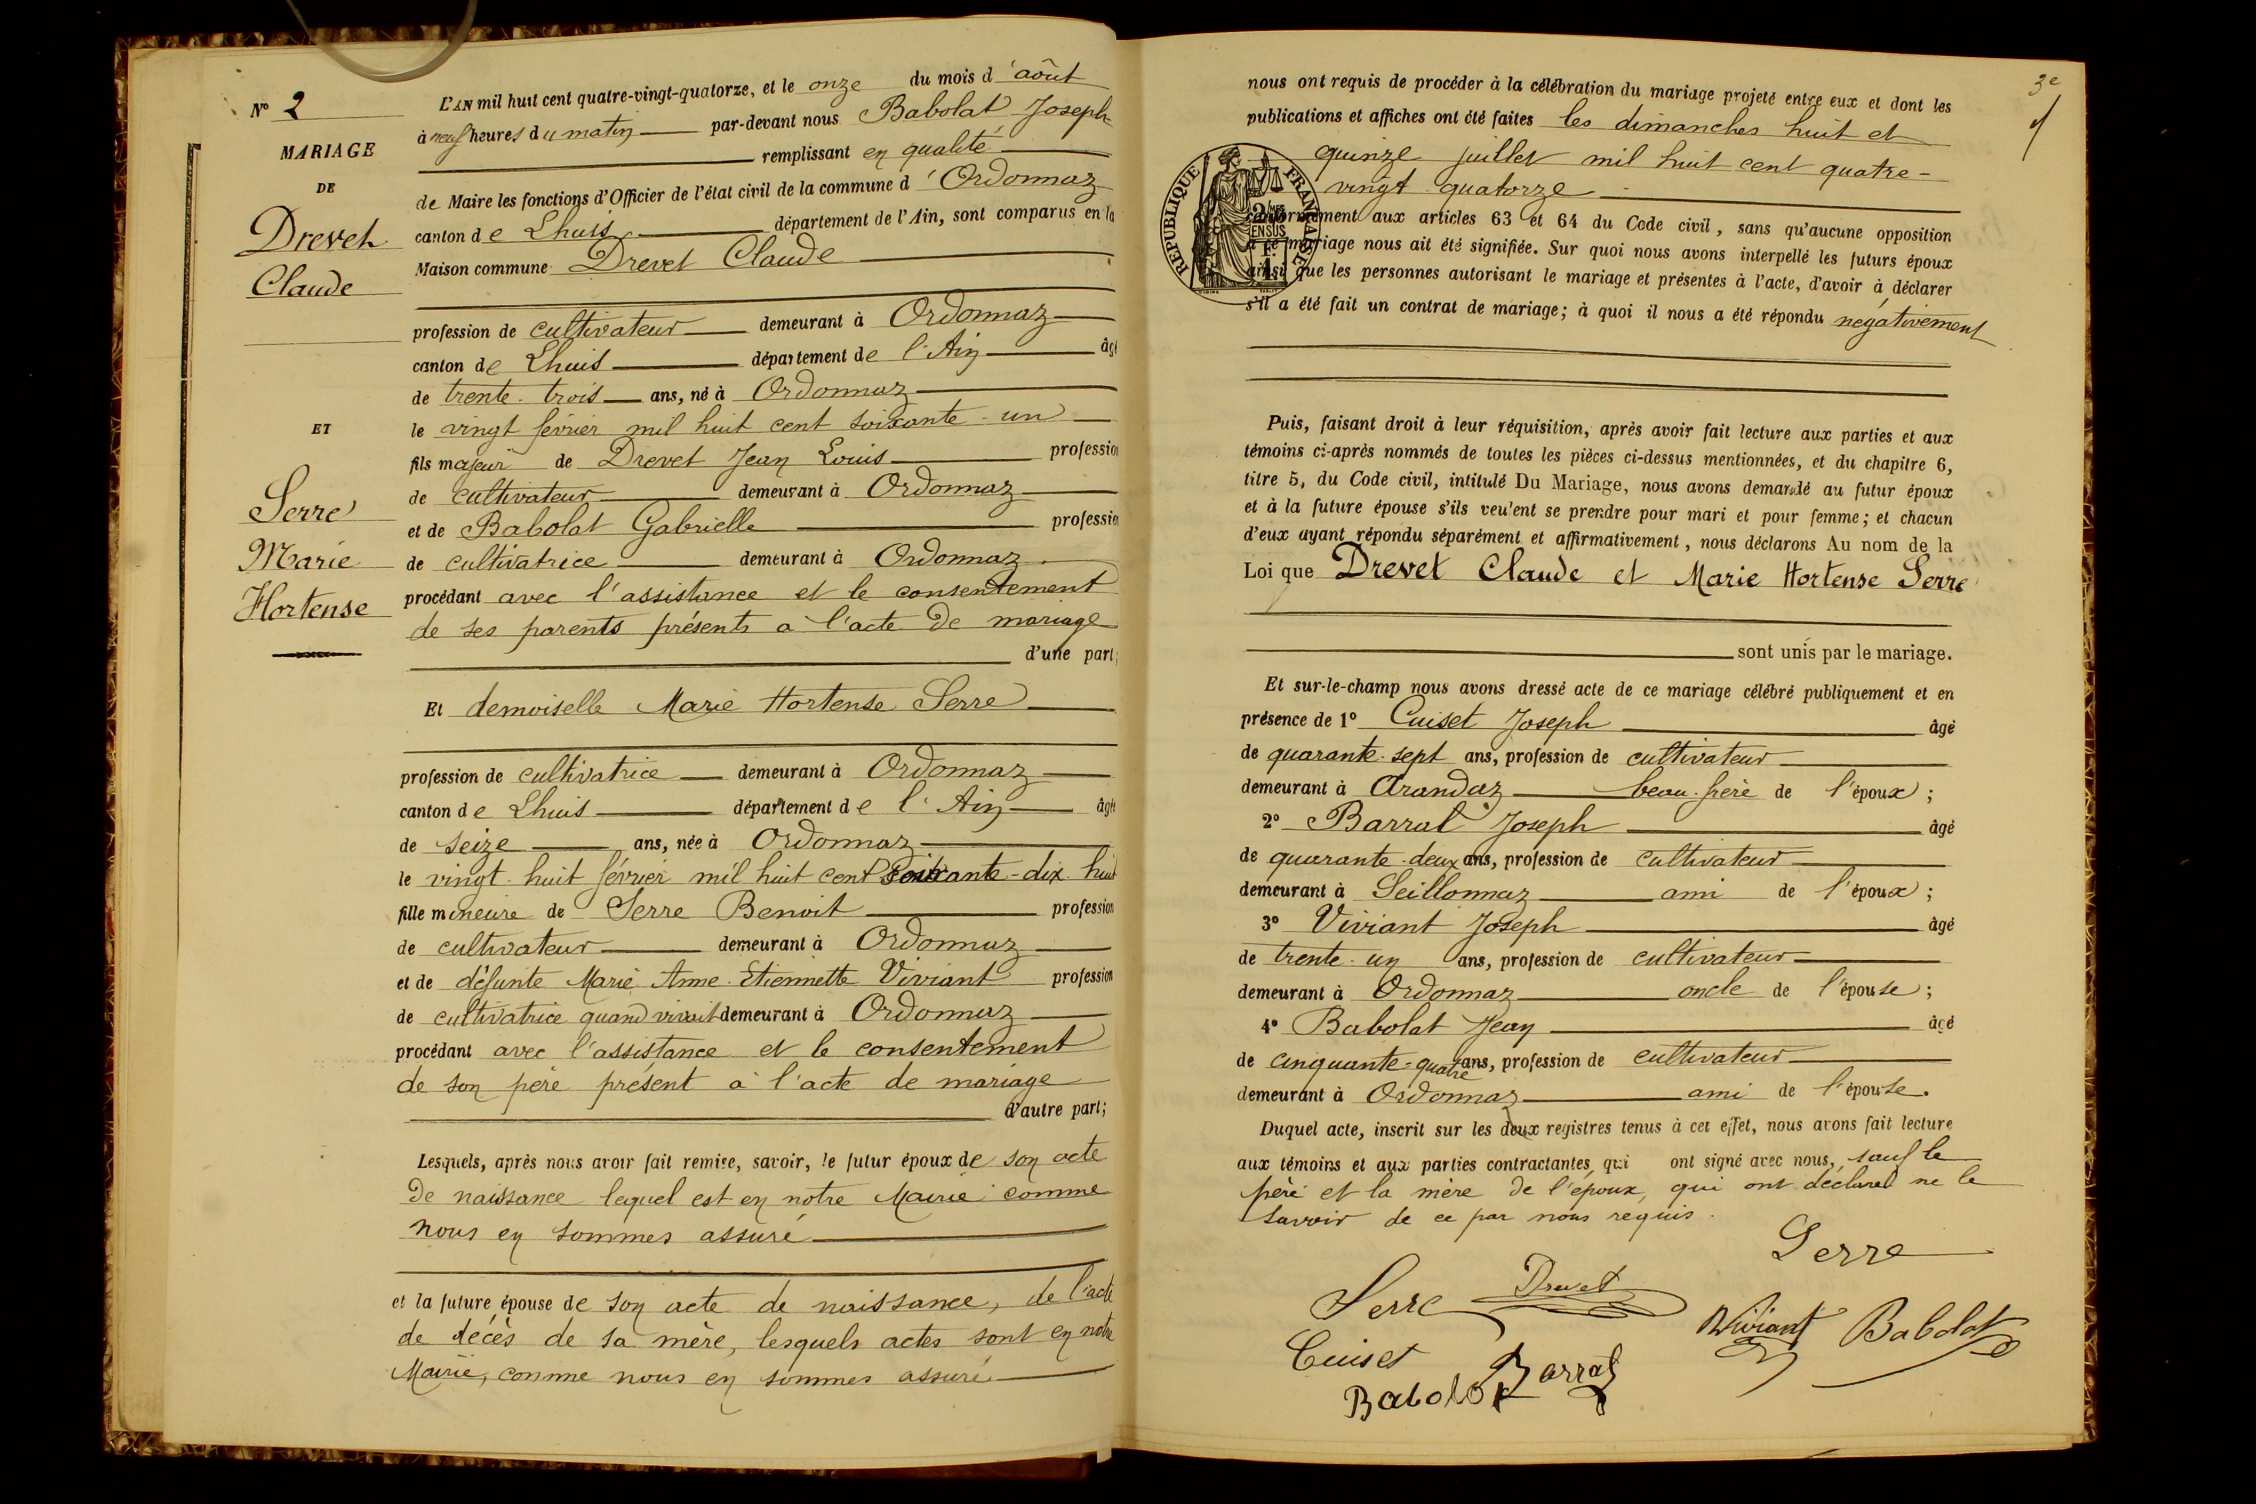 N° 2
MARIAGE
DE
Drevet
Claude
ET
Serre
Marie
Hortense
L'AN mil huit cent quatre-vingt-quatorze, et le onze du mois d'août
à neuf heures du matin par-devant nous Babolat Joseph
remplissant en qualité
de Maire les fonctions d'Officier de l'état civil de la commune d'Ordonnaz
canton de Lhuis département de l'Ain, sont comparus en la
Maison commune Drevet Claude
profession de cultivateur demeurant à Ordonnaz
canton de Lhuis département de l'Ain âgé
de trente-trois ans, né à Ordonnaz
le vingt février mil huit cent soixante-un
fils majeur de Drevet Jean Louis profession
de cultivateur demeurant à Ordonnaz
et de Babolat Gabrielle profession
de cultivatrice demeurant à Ordonnaz
procédant avec l'assistance et le consentement
de ses parents présents à l'acte de mariage
d'une part;
Et demoiselle Marie Hortense Serre
profession de cultivatrice demeurant à Ordonnaz
canton de Lhuis département de l'Ain âgée
de seize ans, née à Ordonnaz
le vingt-huit février mil huit cent soixante-dix-huit
fille mineure de Serre Benoit profession
de cultivateur demeurant à Ordonnaz
et de défunte Marie Anne Etiennette Viviant profession
de cultivatrice quand vivait demeurant à Ordonnaz
procédant avec l'assistance et le consentement
de son père présent à l'acte de mariage
d'autre part;
Lesquels, après nous avoir fait remise, savoir, le futur époux de son acte
de naissance lequel est en notre Mairie comme
nous en sommes assuré
et la future épouse de son acte de naissance, de l'acte
de décès de sa mère, lesquels actes sont en notre
Mairie, comme nous en sommes assuré.
3e
nous ont requis de procéder à la célébration du mariage projeté entre eux et dont les
publications et affiches ont été faites les dimanches huit et
quinze juillet mil huit cent quatre-
vingt quatorze
RÉPUBLIQUE FRANÇAISE
conformément aux articles 63 et 64 du Code civil, sans qu'aucune opposition
à ce mariage nous ait été signifiée. Sur quoi nous avons interpellé les futurs époux
ainsi que les personnes autorisant le mariage et présentes à l'acte, d'avoir à déclarer
s'il a été fait un contrat de mariage; à quoi il nous a été répondu négativement
Puis, faisant droit à leur réquisition, après avoir fait lecture aux parties et aux
témoins ci-après nommés de toutes les pièces ci-dessus mentionnées, et du chapitre 6,
titre 5, du Code civil, intitulé Du Mariage, nous avons demandé au futur époux
et à la future épouse s'ils veulent se prendre pour mari et pour femme; et chacun
d'eux ayant répondu séparément et affirmativement, nous déclarons Au nom de la
Loi que Drevet Claude et Marie Hortense Serre
sont unis par le mariage.
Et sur-le-champ nous avons dressé acte de ce mariage célébré publiquement et en
présence de 1° Cuiset Joseph âgé
de quarante-sept ans, profession de cultivateur
demeurant à Arandaz beau-frère de l'époux;
2° Barrat Joseph âgé
de quarante-deux ans, profession de cultivateur
demeurant à Seillonnaz ami de l'époux;
3° Viviant Joseph âgé
de trente-un ans, profession de cultivateur
demeurant à Ordonnaz oncle de l'épouse;
4° Babolat Jean âgé
de cinquante-quatre ans, profession de cultivateur
demeurant à Ordonnaz ami de l'épouse.
Duquel acte, inscrit sur les deux registres tenus à cet effet, nous avons fait lecture
aux témoins et aux parties contractantes, qui ont signé avec nous, sauf le
père et la mère de l'époux, qui ont déclaré ne le
savoir de ce par nous requis.
Serre
Serre Drevet
Viviant Babolat
Cuiset
Barrat
Babolat